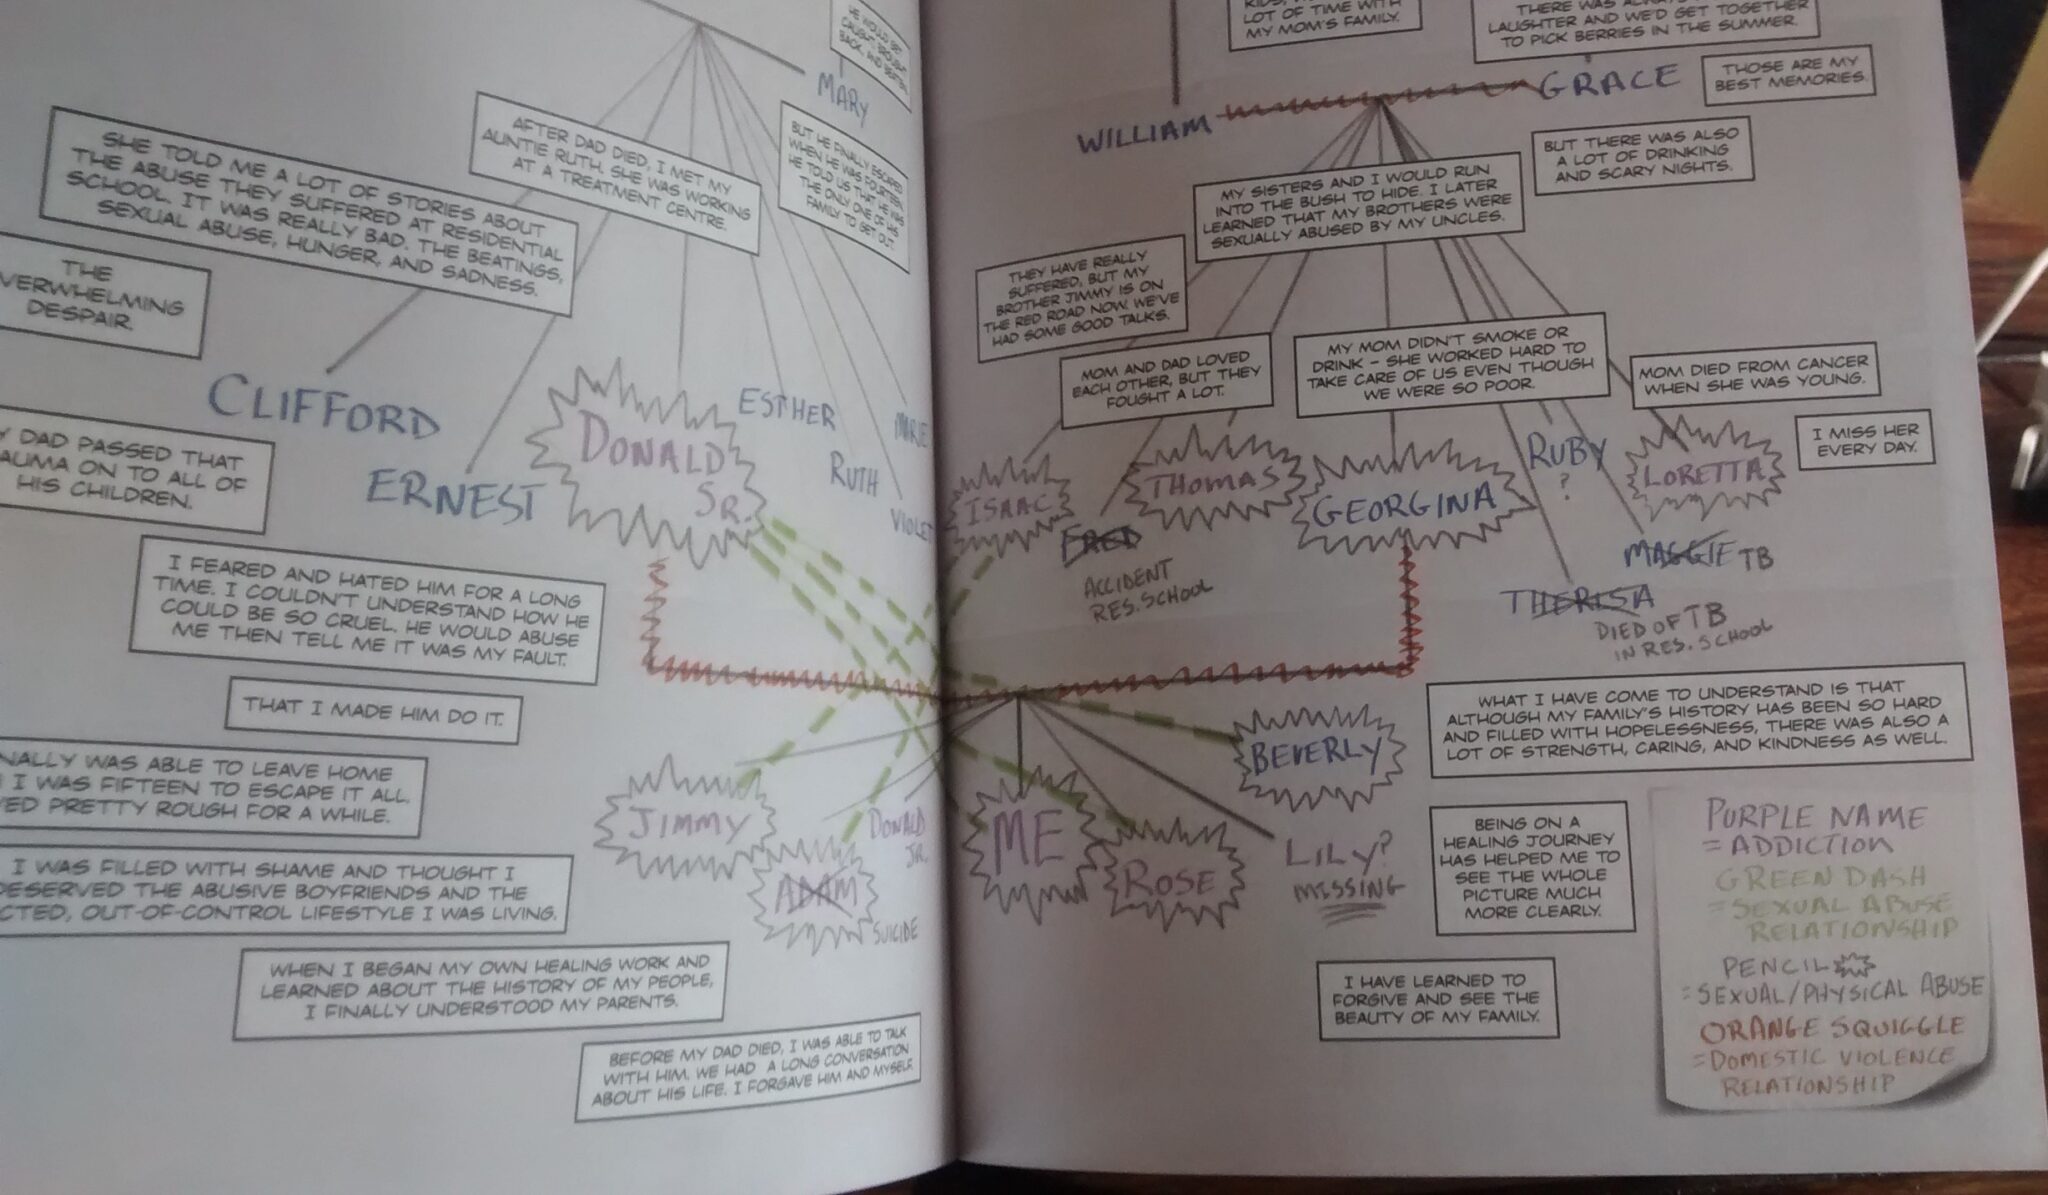 HE WOULD GET
CAUGHT, BROUGHT
BACK, AND BEATEN.
MARY
BUT HE FINALLY ESCAPED
WHEN HE WAS FOURTEEN.
HE TOLD US THAT HE WAS
THE ONLY ONE OF HIS
FAMILY TO GET OUT.
AFTER DAD DIED, I MET MY
AUNTIE RUTH. SHE WAS WORKING
AT A TREATMENT CENTRE.
SHE TOLD ME A LOT OF STORIES ABOUT
THE ABUSE THEY SUFFERED AT RESIDENTIAL
SCHOOL. IT WAS REALLY BAD. THE BEATINGS,
SEXUAL ABUSE, HUNGER, AND SADNESS.
THE
VERWHELMING
DESPAIR.
CLIFFORD
ERNEST
DONALD
SR.
ESTHER
RUTH
MARIE
VIOLET
Y DAD PASSED THAT
AUMA ON TO ALL OF
HIS CHILDREN.
I FEARED AND HATED HIM FOR A LONG
TIME. I COULDN'T UNDERSTAND HOW HE
COULD BE SO CRUEL. HE WOULD ABUSE
ME THEN TELL ME IT WAS MY FAULT.
THAT I MADE HIM DO IT.
NALLY WAS ABLE TO LEAVE HOME
I WAS FIFTEEN TO ESCAPE IT ALL.
VED PRETTY ROUGH FOR A WHILE.
I WAS FILLED WITH SHAME AND THOUGHT I
DESERVED THE ABUSIVE BOYFRIENDS AND THE
CTED, OUT-OF-CONTROL LIFESTYLE I WAS LIVING.
WHEN I BEGAN MY OWN HEALING WORK AND
LEARNED ABOUT THE HISTORY OF MY PEOPLE,
I FINALLY UNDERSTOOD MY PARENTS.
BEFORE MY DAD DIED, I WAS ABLE TO TALK
WITH HIM. WE HAD A LONG CONVERSATION
ABOUT HIS LIFE. I FORGAVE HIM AND MYSELF.
JIMMY
ADAM
SUICIDE
DONALD
JR.
LOT OF TIME WITH
MY MOM'S FAMILY.
THERE WAS ALWAYS
LAUGHTER AND WE'D GET TOGETHER
TO PICK BERRIES IN THE SUMMER.
THOSE ARE MY
BEST MEMORIES.
WILLIAM
GRACE
BUT THERE WAS ALSO
A LOT OF DRINKING
AND SCARY NIGHTS.
MY SISTERS AND I WOULD RUN
INTO THE BUSH TO HIDE. I LATER
LEARNED THAT MY BROTHERS WERE
SEXUALLY ABUSED BY MY UNCLES.
THEY HAVE REALLY
SUFFERED, BUT MY
BROTHER JIMMY IS ON
THE RED ROAD NOW. WE'VE
HAD SOME GOOD TALKS.
MOM AND DAD LOVED
EACH OTHER, BUT THEY
FOUGHT A LOT.
MY MOM DIDN'T SMOKE OR
DRINK – SHE WORKED HARD TO
TAKE CARE OF US EVEN THOUGH
WE WERE SO POOR.
MOM DIED FROM CANCER
WHEN SHE WAS YOUNG.
I MISS HER
EVERY DAY.
ISAAC
FRED
ACCIDENT
RES. SCHOOL
THOMAS
GEORGINA
RUBY
?
LORETTA
MAGGIE TB
THERISA
DIED OF TB
IN RES. SCHOOL
WHAT I HAVE COME TO UNDERSTAND IS THAT
ALTHOUGH MY FAMILY'S HISTORY HAS BEEN SO HARD
AND FILLED WITH HOPELESSNESS, THERE WAS ALSO A
LOT OF STRENGTH, CARING, AND KINDNESS AS WELL.
BEVERLY
ME
ROSE
LILY?
MISSING
BEING ON A
HEALING JOURNEY
HAS HELPED ME TO
SEE THE WHOLE
PICTURE MUCH
MORE CLEARLY.
I HAVE LEARNED TO
FORGIVE AND SEE THE
BEAUTY OF MY FAMILY.
PURPLE NAME
= ADDICTION
GREEN DASH
= SEXUAL ABUSE
RELATIONSHIP
PENCIL
= SEXUAL/PHYSICAL ABUSE
ORANGE SQUIGGLE
= DOMESTIC VIOLENCE
RELATIONSHIP